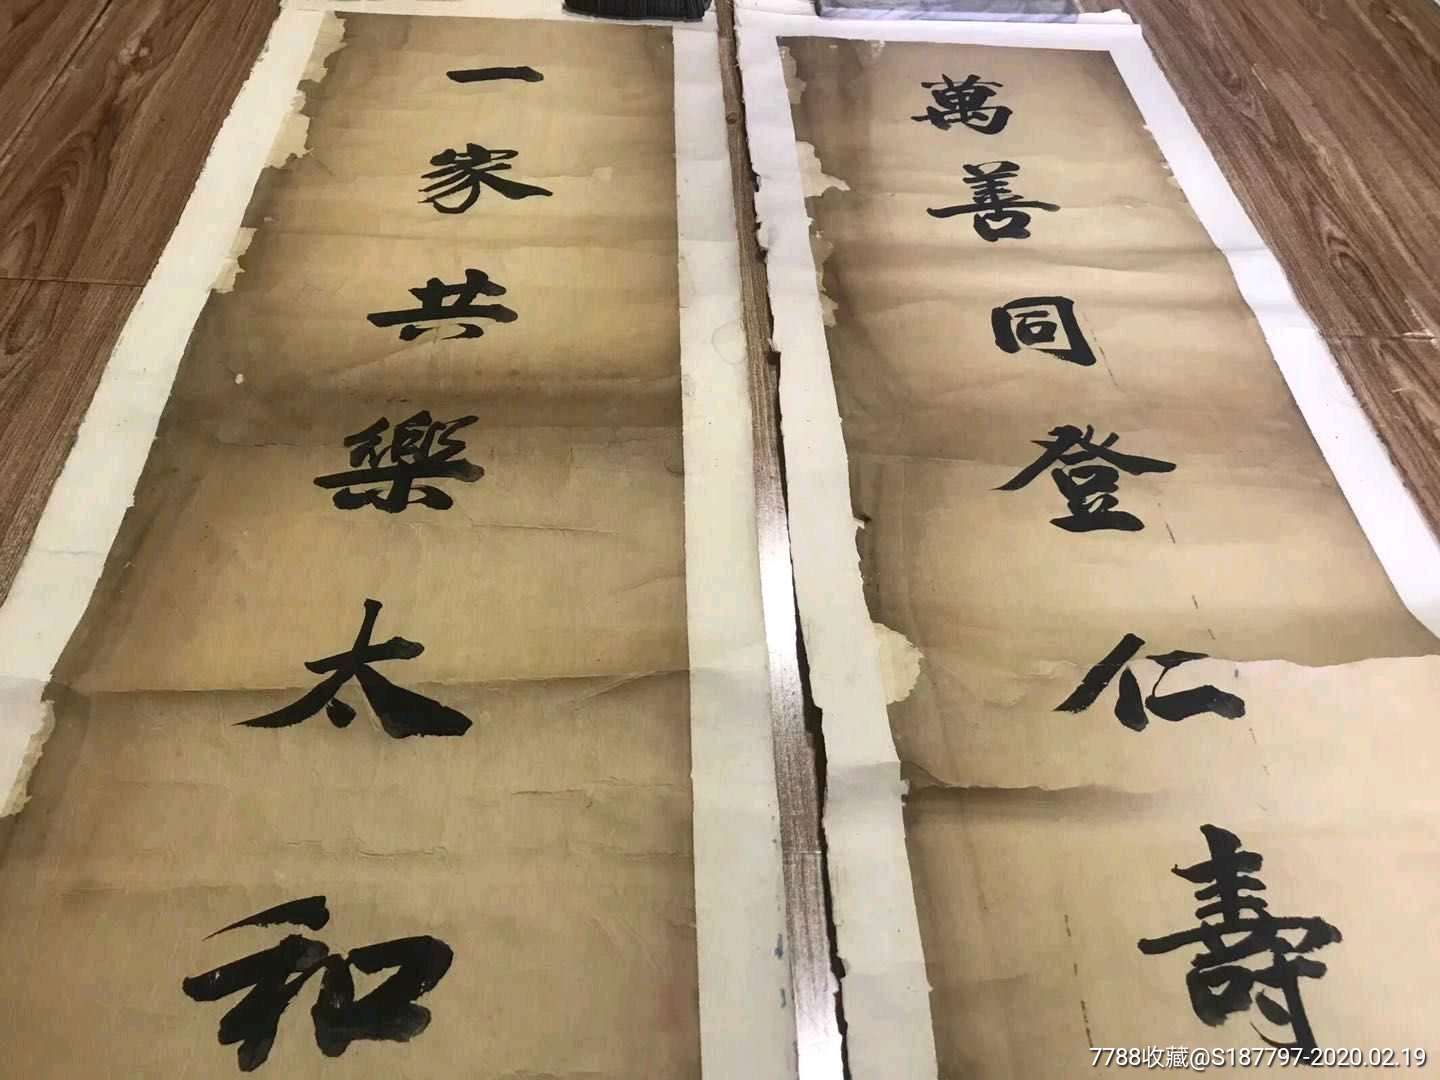 萬善同登仁壽
一家共樂太和
7788收藏@S187797-2020.02.19